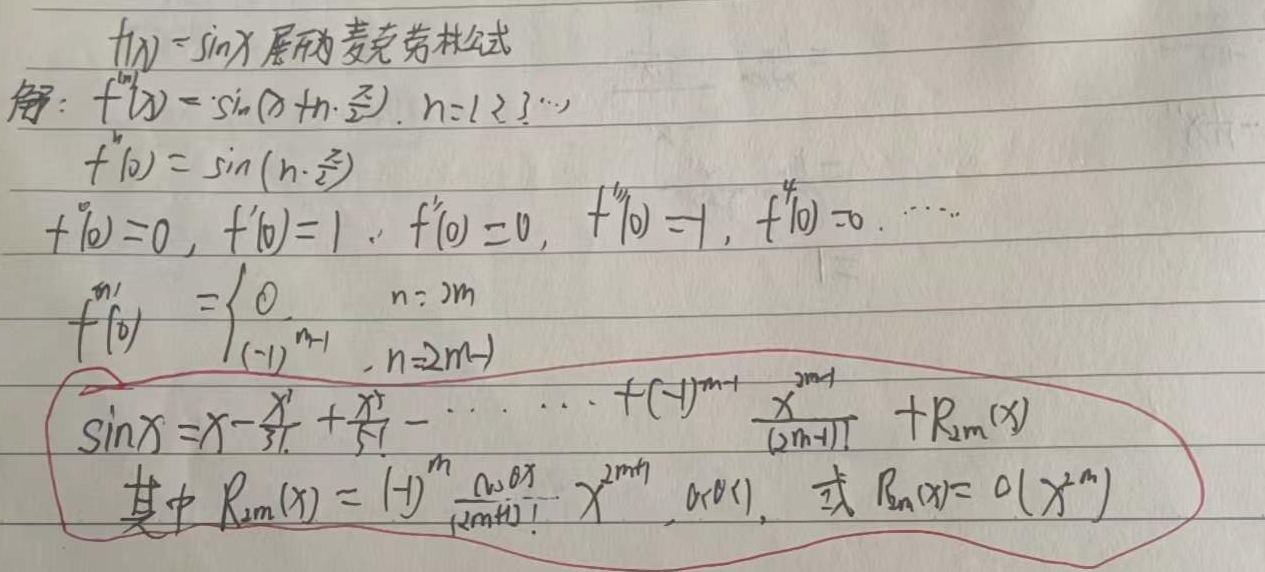 f(x) = sinx 展开为麦克劳林公式
解: f⁽ⁿ⁾(x) = sin(x + n·π/2). n=1 2 3 …,
fⁿ(0) = sin(n·π/2)
f⁰(0) = 0, f'(0) = 1, f''(0) = 0, f'''(0) = -1, f⁴(0) = 0. ……
f⁽ⁿ⁾(0) = { 0 n = 2m
(-1)^(m-1), n = 2m-1
sinx = x - x³/3! + x⁵/5! - …… … + (-1)^(m-1) x^(2m-1)/(2m-1)! + R₂ₘ(x)
其中 R₂ₘ(x) = (-1)^m cosθx/(2m+1)! x^(2m+1), 0<θ<1, 或 R₂ₘ(x) = o(x^(2m))